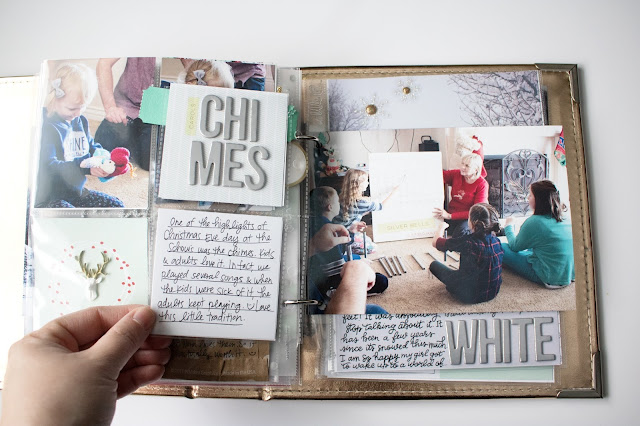 CHI
MES
One of the highlights of
Christmas Eve day at the
was the chimes. Kids
& adults love it. In fact we
played several songs & when
the kids were sick of it, the
adults kept playing. ♡ Love
this little tradition.
SILVER BELLS
feet! It was
stop talking about it. It
has been a few years
since its snowed this much.
I am so happy my girl got
to wake up to a world of
WHITE